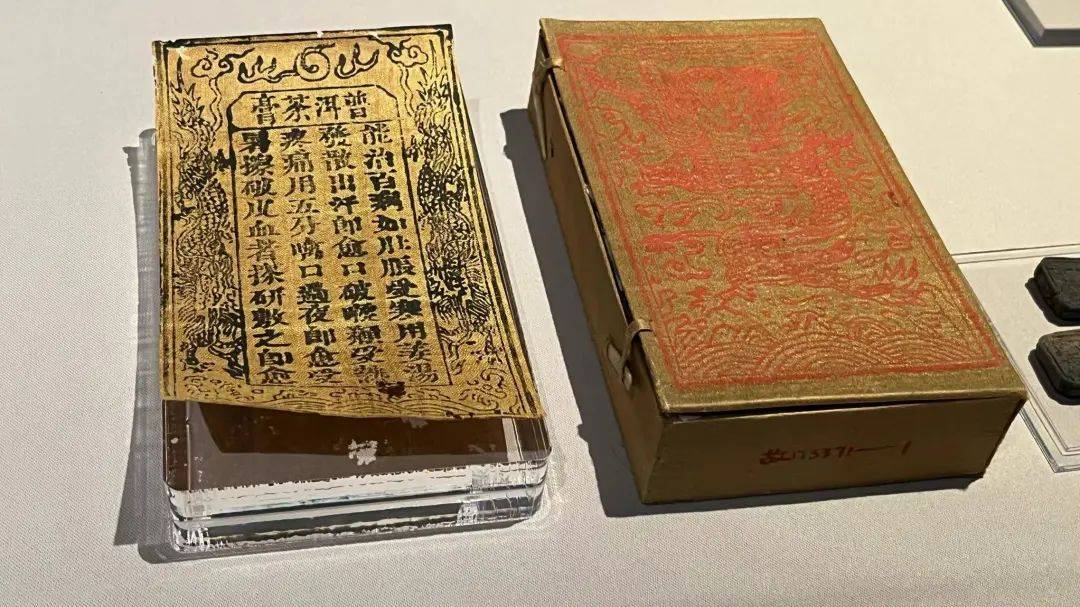 普洱茶膏
能治百病如肚脹受寒用姜湯
發散出汗即愈口破喉顙受熱
疼痛用五分噙口過夜即愈受
暑擦破皮血者搽研敷之即愈
故173371—1